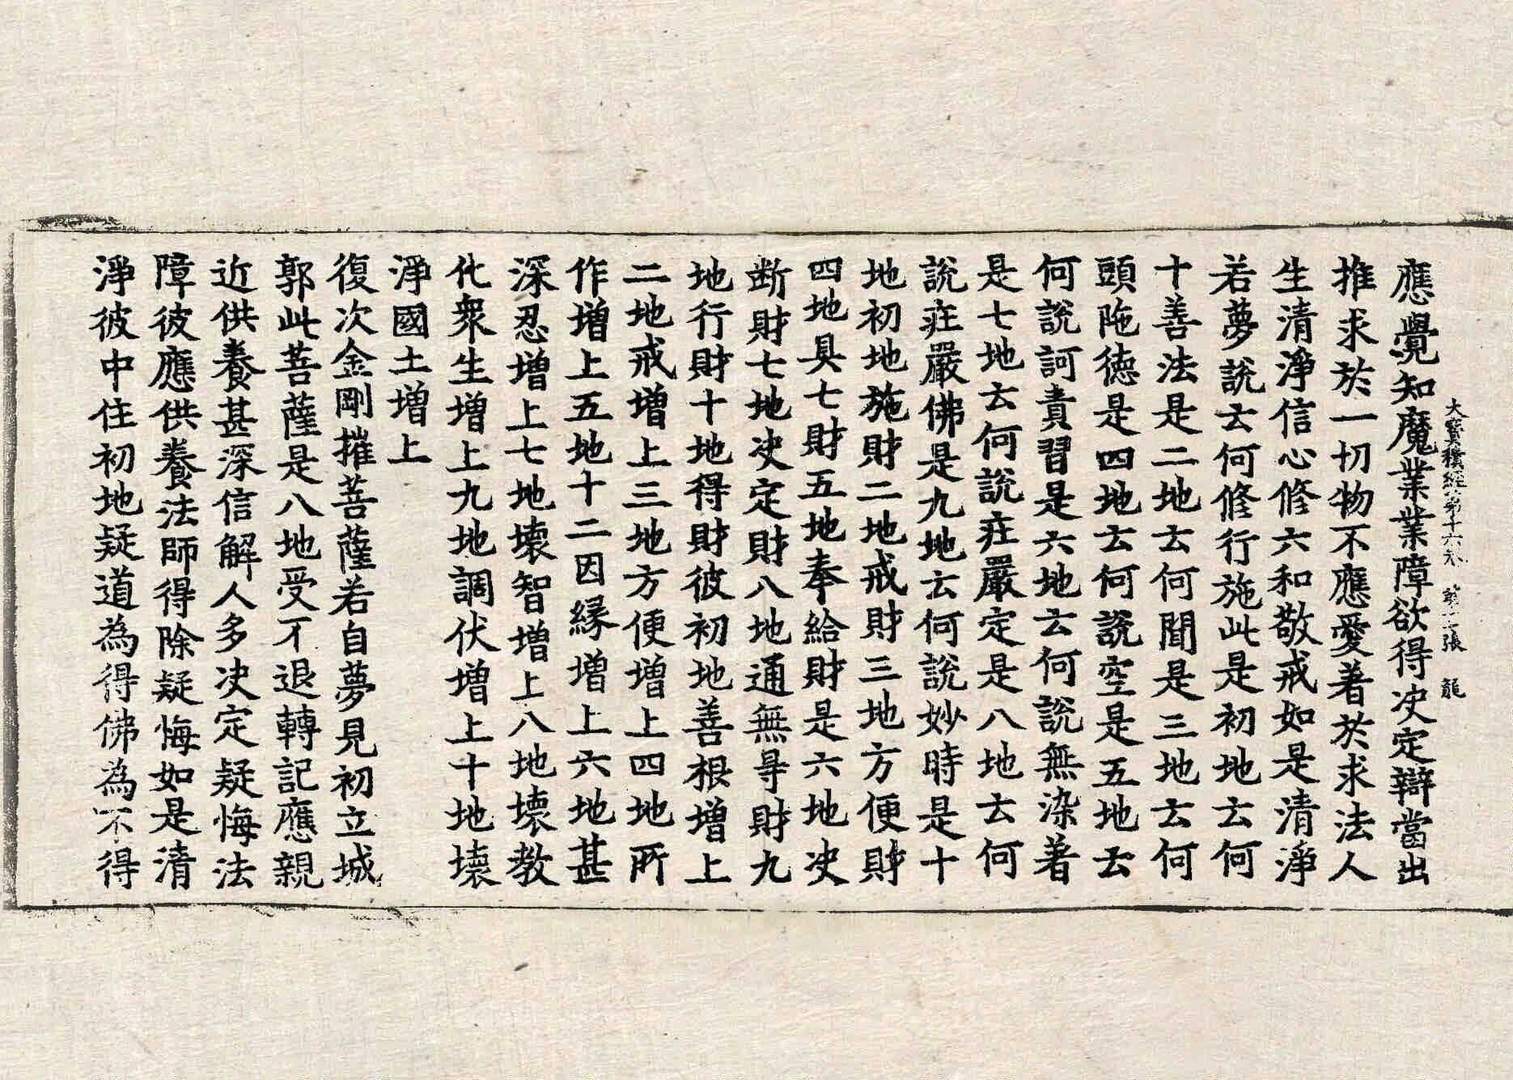 應覺知魔業業障欲得決定辯當出
大寶積經第十六卷 張 龍
推求於一切物不應愛著於求法人
生清淨信心修六和敬戒如是清淨
若夢說云何修行施此是初地云何
十善法是二地云何聞是三地云何
頭陁德是四地云何說空是五地云
何說訶責習是六地云何說無染著
是七地云何說莊嚴定是八地云何
說莊嚴佛是九地云何說妙時是十
地初地施財二地戒財三地方便財
四地具七財五地奉給財是六地決
断財七地決定財八地通無㝵財九
地行財十地得財彼初地善根增上
二地戒增上三地方便增上四地所
作增上五地十二因緣增上六地甚
深忍增上七地壞智增上八地壞教
化衆生增上九地調伏增上十地壞
淨國土增上
復次金剛摧菩薩若自夢見初立城
郭此菩薩是八地受不退轉記應親
近供養甚深信解人多決定疑悔法
障彼應供養法師得除疑悔如是清
淨彼中住初地疑道為得佛為不得